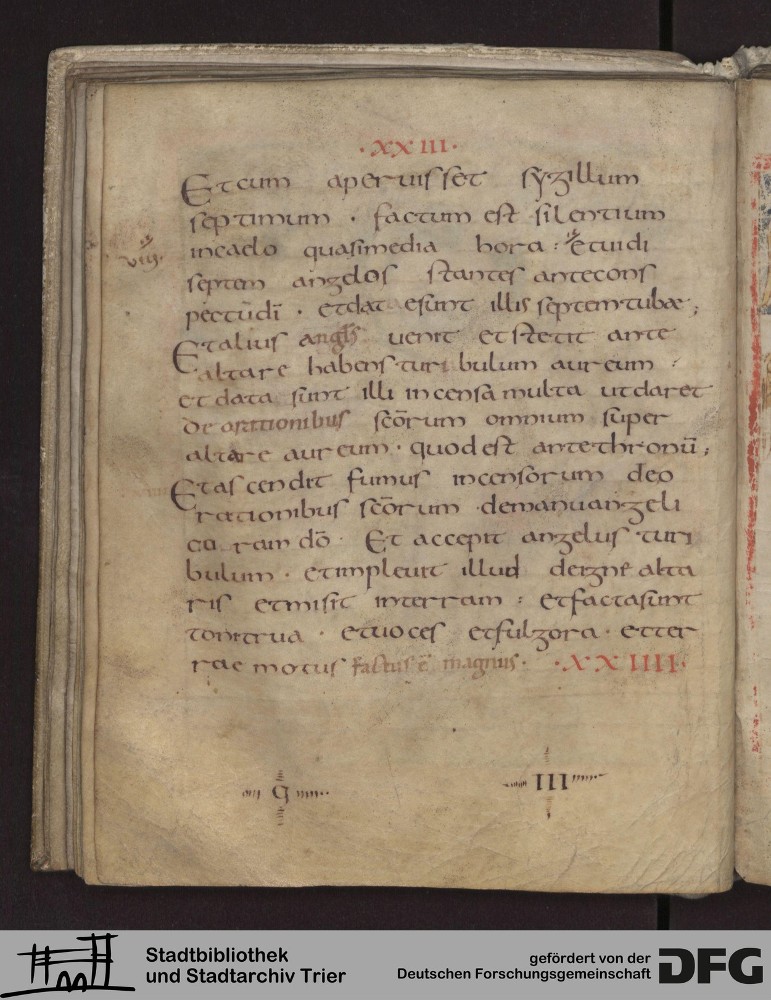 · XXIII ·
Et cum aperuisset syzillum
septimum · factum est silentium
in caelo quasi media hora : Et uidi
VIII.
septem angelos stantes ante cons
pectū dī · et datae sunt illis septem tubae ;
Et alius angls uenit et stetit ante
altare habens turibulum aureum :
et data sunt illi incensa multa ut daret
de orationibus scōrum omnium super
altare aureum · quod est ante thronū ;
Et ascendit fumus incensorum deo
rationibus scōrum · de manu angeli
co ram dō · Et accepit angelus turi
bulum · et impleuit illud de igne alta
ris et misit in terram : et facta sunt
tonitrua · et uoces et fulgora · et ter
rae motus factus ē magnus · · XXIIII ·
q III
Stadtbibliothek
und Stadtarchiv Trier
gefördert von der
Deutschen Forschungsgemeinschaft
DFG